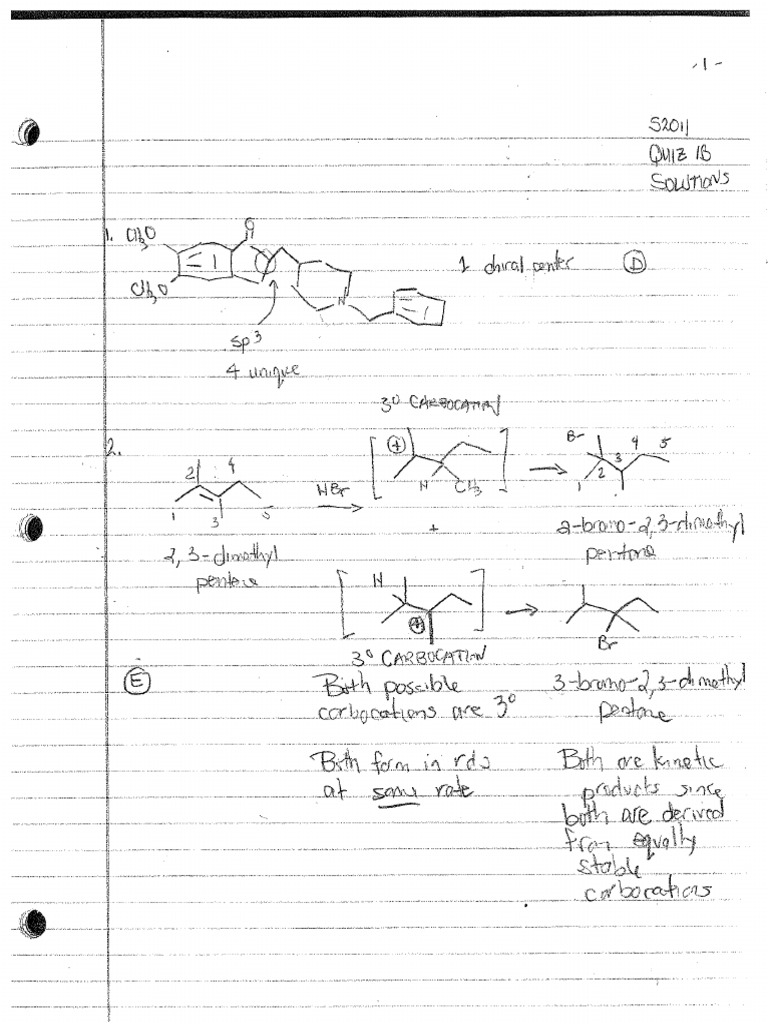 -1-
S2011
QUIZ 1B
SOLUTIONS
1. CH3O
O
CH3O
N
1 chiral center (D)
sp3
4 unique
3° CARBOCATION
2.
2 4
1 3 5
HBr
(+)
H CH3
Br 4 5
3
2
1
+
2,3-dimethyl
pentene
2-bromo-2,3-dimethyl
pentane
H
(+)
Br
3° CARBOCATION
(E)
Both possible
carbocations are 3°
3-bromo-2,3-dimethyl
pentane
Both form in rds
at same rate
Both are kinetic
products since
both are derived
from equally
stable
carbocations